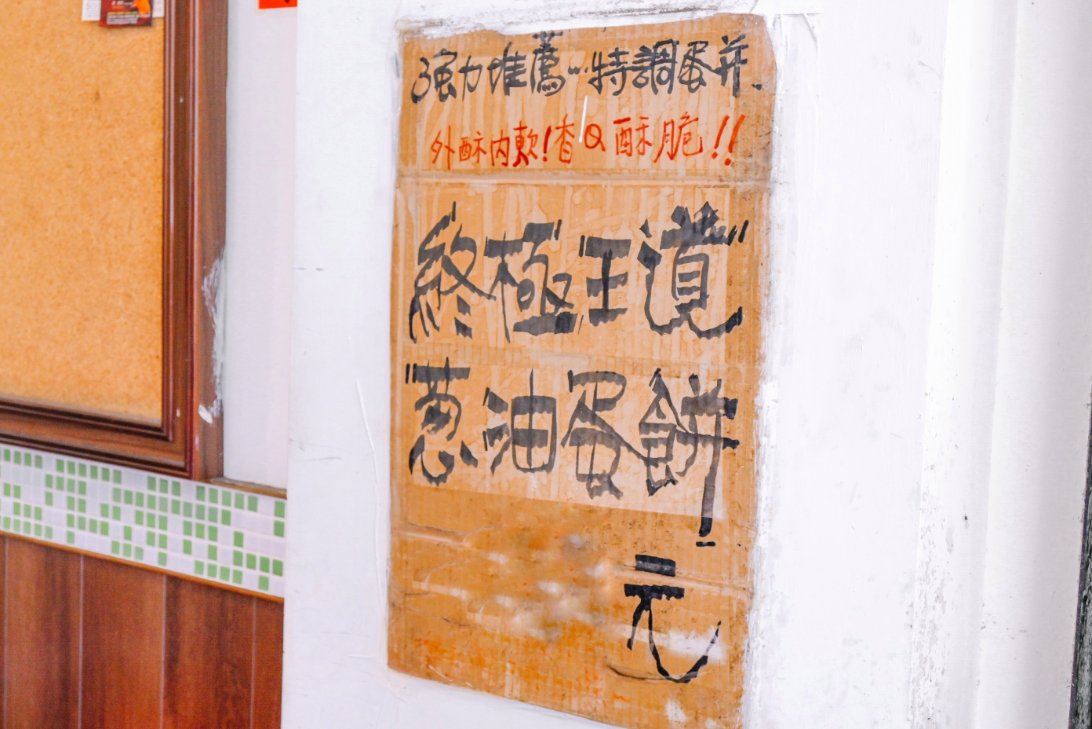 強力推薦…特調蛋并.
外酥內軟!香Q酥脆!!
終極王道
葱油蛋餅
元